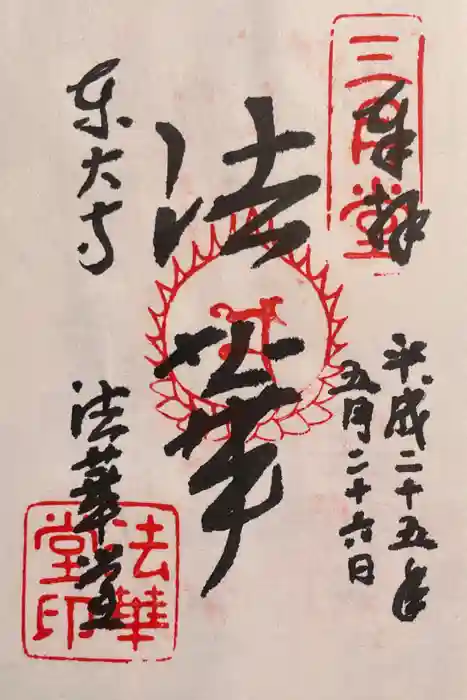 奉拝
三月堂
平成二十五年
五月二十六日
法華
東大寺
法華堂
法華
堂印